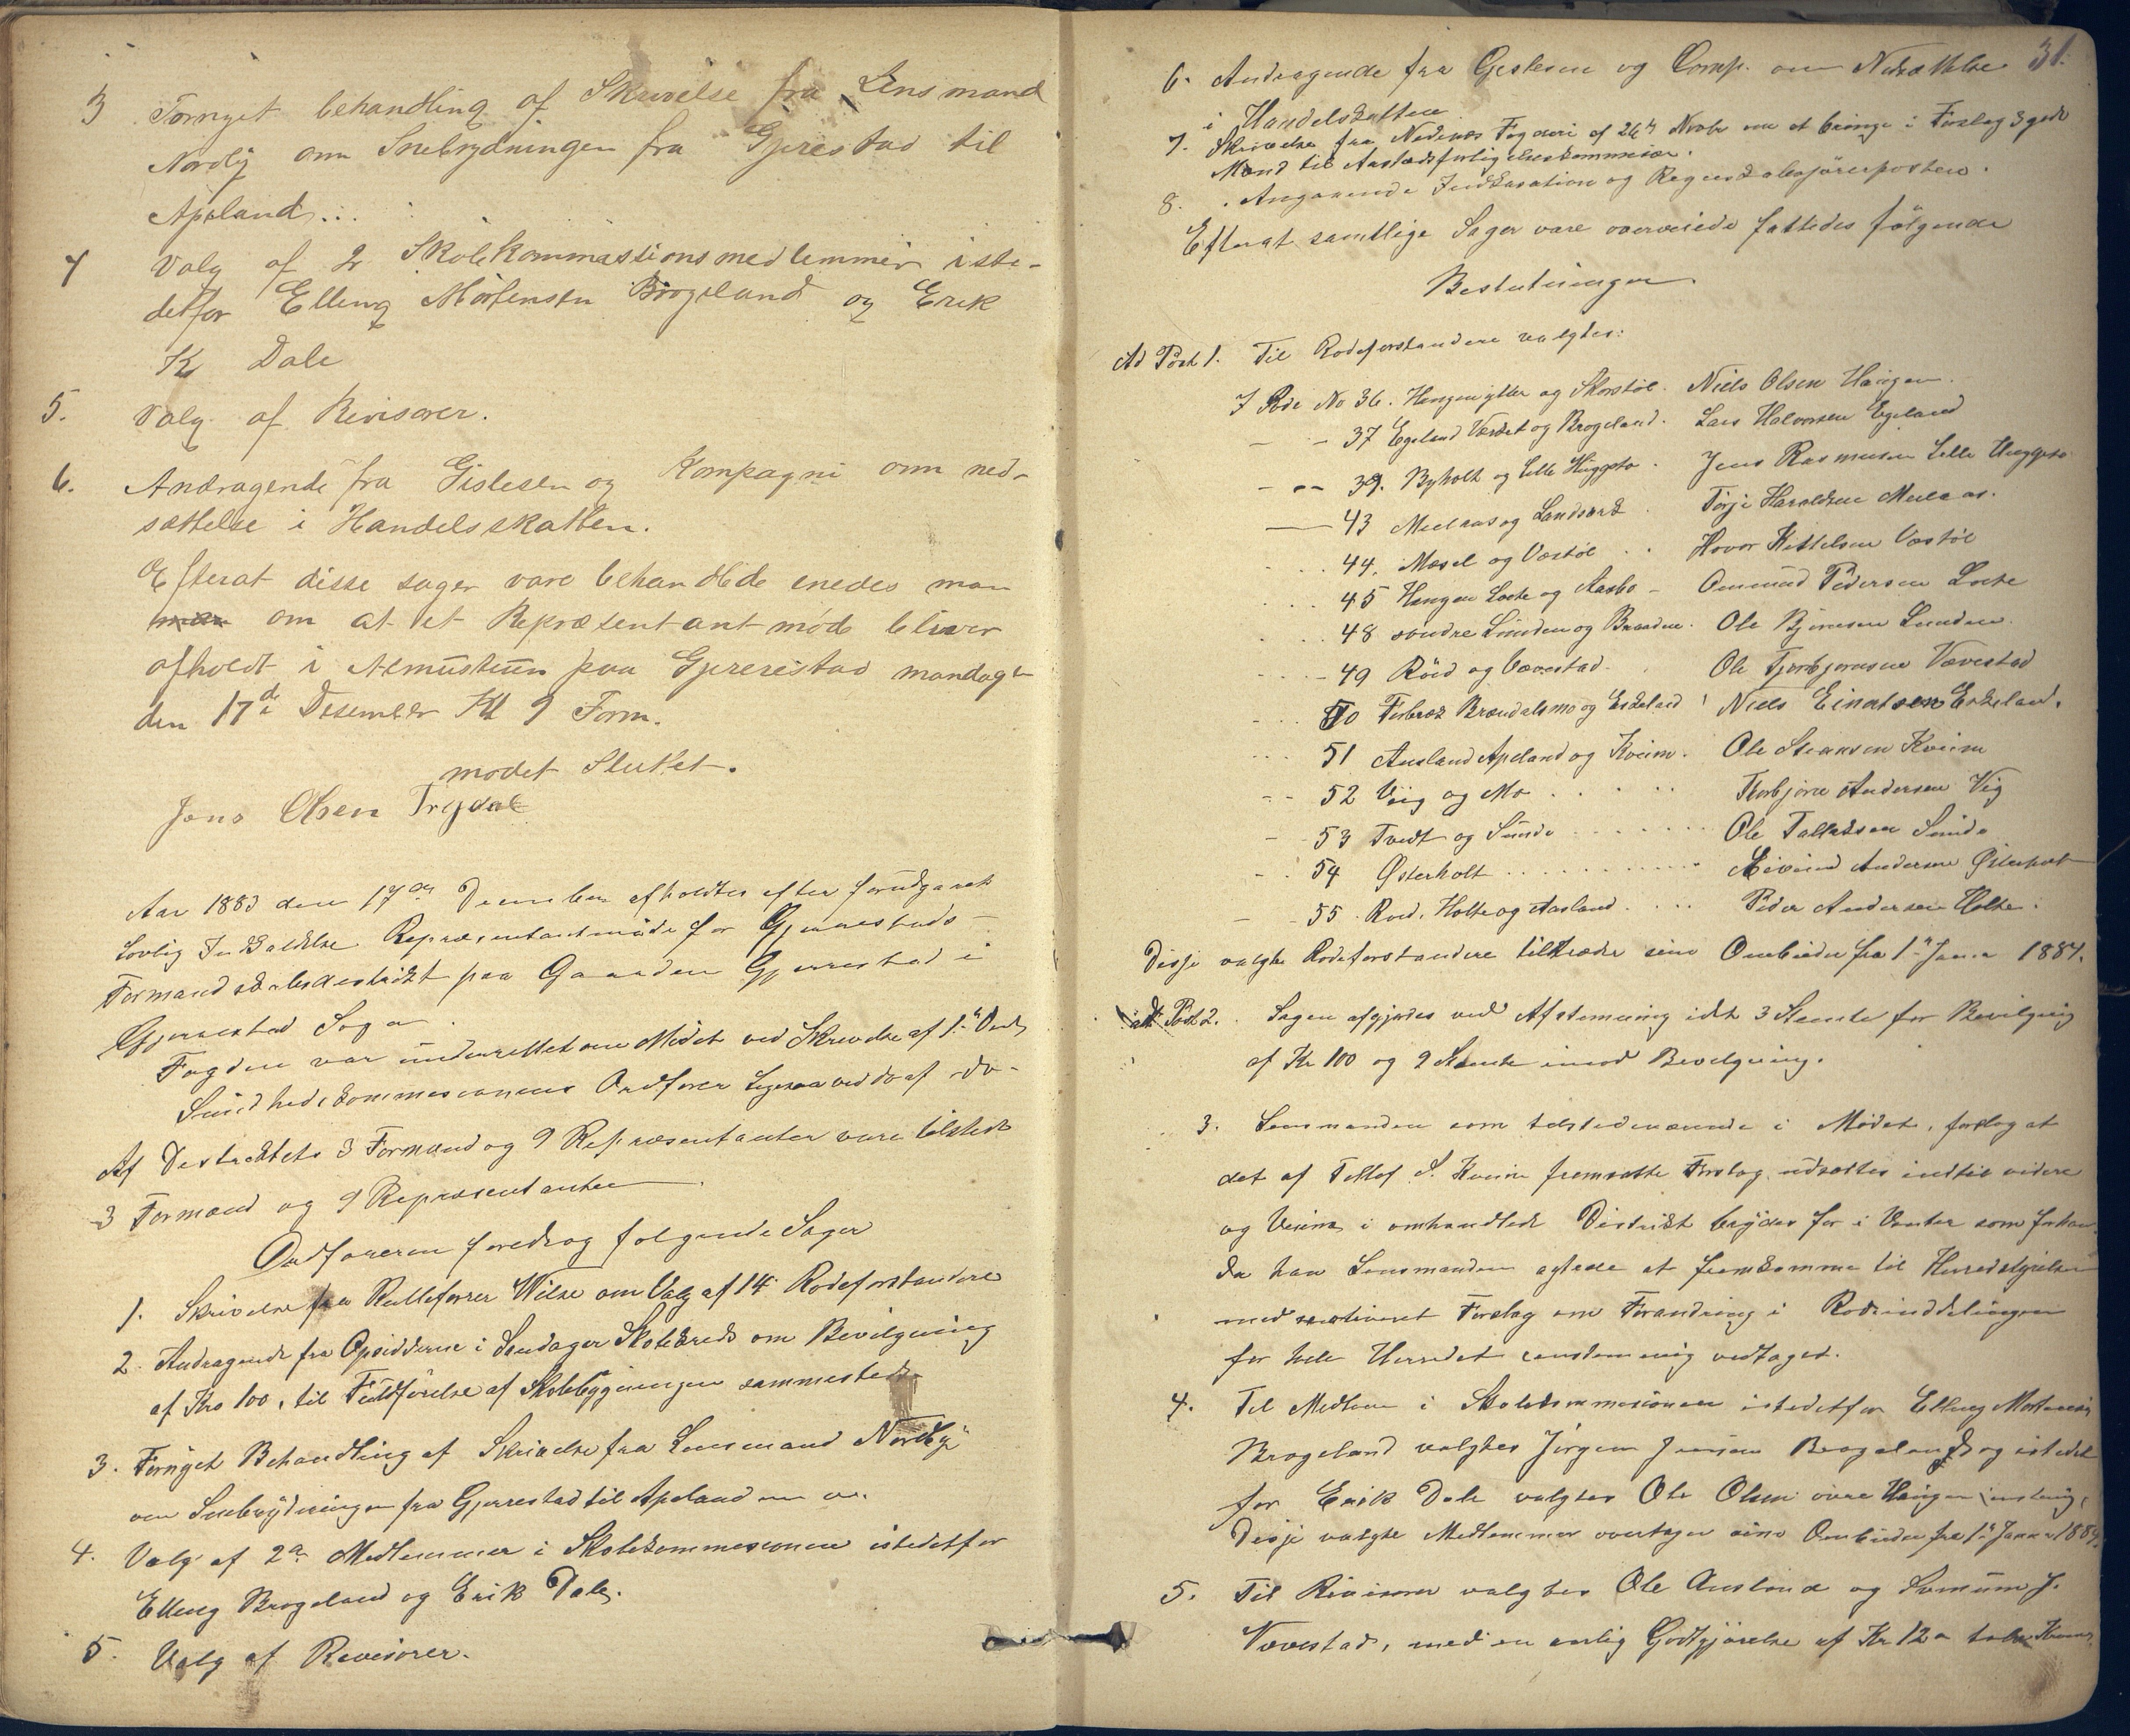 3 Fornyet behandling af Skrivelse fra Lensmand
Nordby om Snebrydningen fra Gjerestad til
Apeland...
4 Valg af 2 Skolekommassionsmedlemmer iste-
detfor Elling Mortensen Brogeland og Erik
K Dale
5. Valg af Revisorer.
6. Andragende fra Gislesen og Kompagni om ned-
sættelse i Handelsskatten.
Efterat disse sager vare behandlede enedes man
om at et Repræsentantmøde bliver
afholdt i Almustuen paa Gjerrestad mandag
den 17de Desember Kl 9 Form.
mødet Sluttet.
Jens Olsen Trydal
Aar 1883 den 17de December afholdtes efter forudgaaet
Lovlig Indkaldelse Repræsentantmøde for Gjerrestads
Formandskabsdestrikt paa Gaarden Gjerrestad i
Gjerrestad Sogn.
Fogden var underrettet om Mødet ved Skrivelse af 1ste Dec
Sundhedskommissionens Ordfører ligesaa ved do af do.
Af Destriktets 3 Formænd og 9 Repræsentanter vare tilstede
3 Formænd og 9 Repræsentanter
Ordføreren foredrog følgende Sager
1. Skrivelse fra Rulleførrer Wilse om Valg af 14 Rodeforstandere
2. Andragende fra Opsidderne i Sundager Skolekreds om Bevilgning
af Kro 100, til Fuldførelse af Skolebygningen sammesteds
3. Fornyet Behandling af Skrivelse fra Lensmand Nordby
om Snebrydningen fra Gjerrestad til Apeland
4. Valg af 2de Medlemmer i Skolekommesionen istedetfor
Elling Brogeland og Erik Dale.
5. Valg af Revisorer.
31.
6. Andragende fra Gislesen og Comp. om Nedsættelse
i Handelsskatten
7. Skrivelse fra Nedenæs Fogderi af 26de Novbr om at bringe i Forslag 3 gode
Mænd til Aastedsforligelseskommissær.
8. Angaaende Inkasation og Regnskabsførerposten.
Efterat samtlige Sager vare overveiede fattedes følgende
Beslutninger
Ad Post 1. Til Rodeforstandere valgtes:
I Rode No 36. Haugen ytter og Skorstøl. Niels Olsen Haugen.
37 Egeland Værket og Brogeland. Lars Halvorsen Egeland
39. Byholt og Lille Huggsto. Jens Rasmusen Lille Huggsto
43 Meelaas og Landsverk. Torje Haraldsen Meelaas.
44. Masel og Væstøl .. Hovor Kittelsen Væstøl
45 Haugen Lohte og Aasbo - Ommund Pedersen Lohte
48 søndre Lunden og Braaden. Ole Bjørnsen Lunden.
49 Röed og Vævestad. Ole Tjorbjørnsen Vævestad
50 Fosbræk Brændalsmo og Eskeland Niels Einertsen Eskeland.
51 Ausland Apeland og Kveim. Ole Steansen Kveim
52 Viig og Mo .... Thorbjørn Andersen Vig
53 Tvedt og Sunde ...... Ole Tallaksen Sunde
54 Østerholt ......... Eivind Andersen Østerholt
55. Roed, Holte og Aasland .... Peder Andersen Holte.
Disse valgte Rodeforstandere tiltræder sine Ombuder fra 1ste Januar 1884.
ad Post 2. Sagen afgjordes ved Afstemning idet 3 Stemte for Bevilgning
af Kr 100 og 9 Stemte imod Bevilgning.
3. Lensmanden som tilstedeværende i Mødet, forslog at
det af Tellef S. Kveim fremsatte Forslag udsættes indtil videre
og Veiene i omhandlede Distrikt brydes for i Vinter som forhen
da han Lensmanden agtede at fremkomme til Herredstyrelsen
med motiveret Forslag om Forandring i Rodeinddelingen
for hele Herredet enstemmig vedtaget.
4. Til Medlem i Skolekommisionen istedetfor Elling Mortensen
Brogeland valgtes Jørgen Jensen Brogeland og istedet
for Erik Dale valgtes Ole Olsen øvre Haugen
Disse valgte Medlemmer overtager sine Ombuder fra 1ste Januar 1884.
5. Til Revisorer valgtes Ole Ausland og J.
Vævestad, med en aarlig Godtgjørelse af Kr 12 tolv Kroner